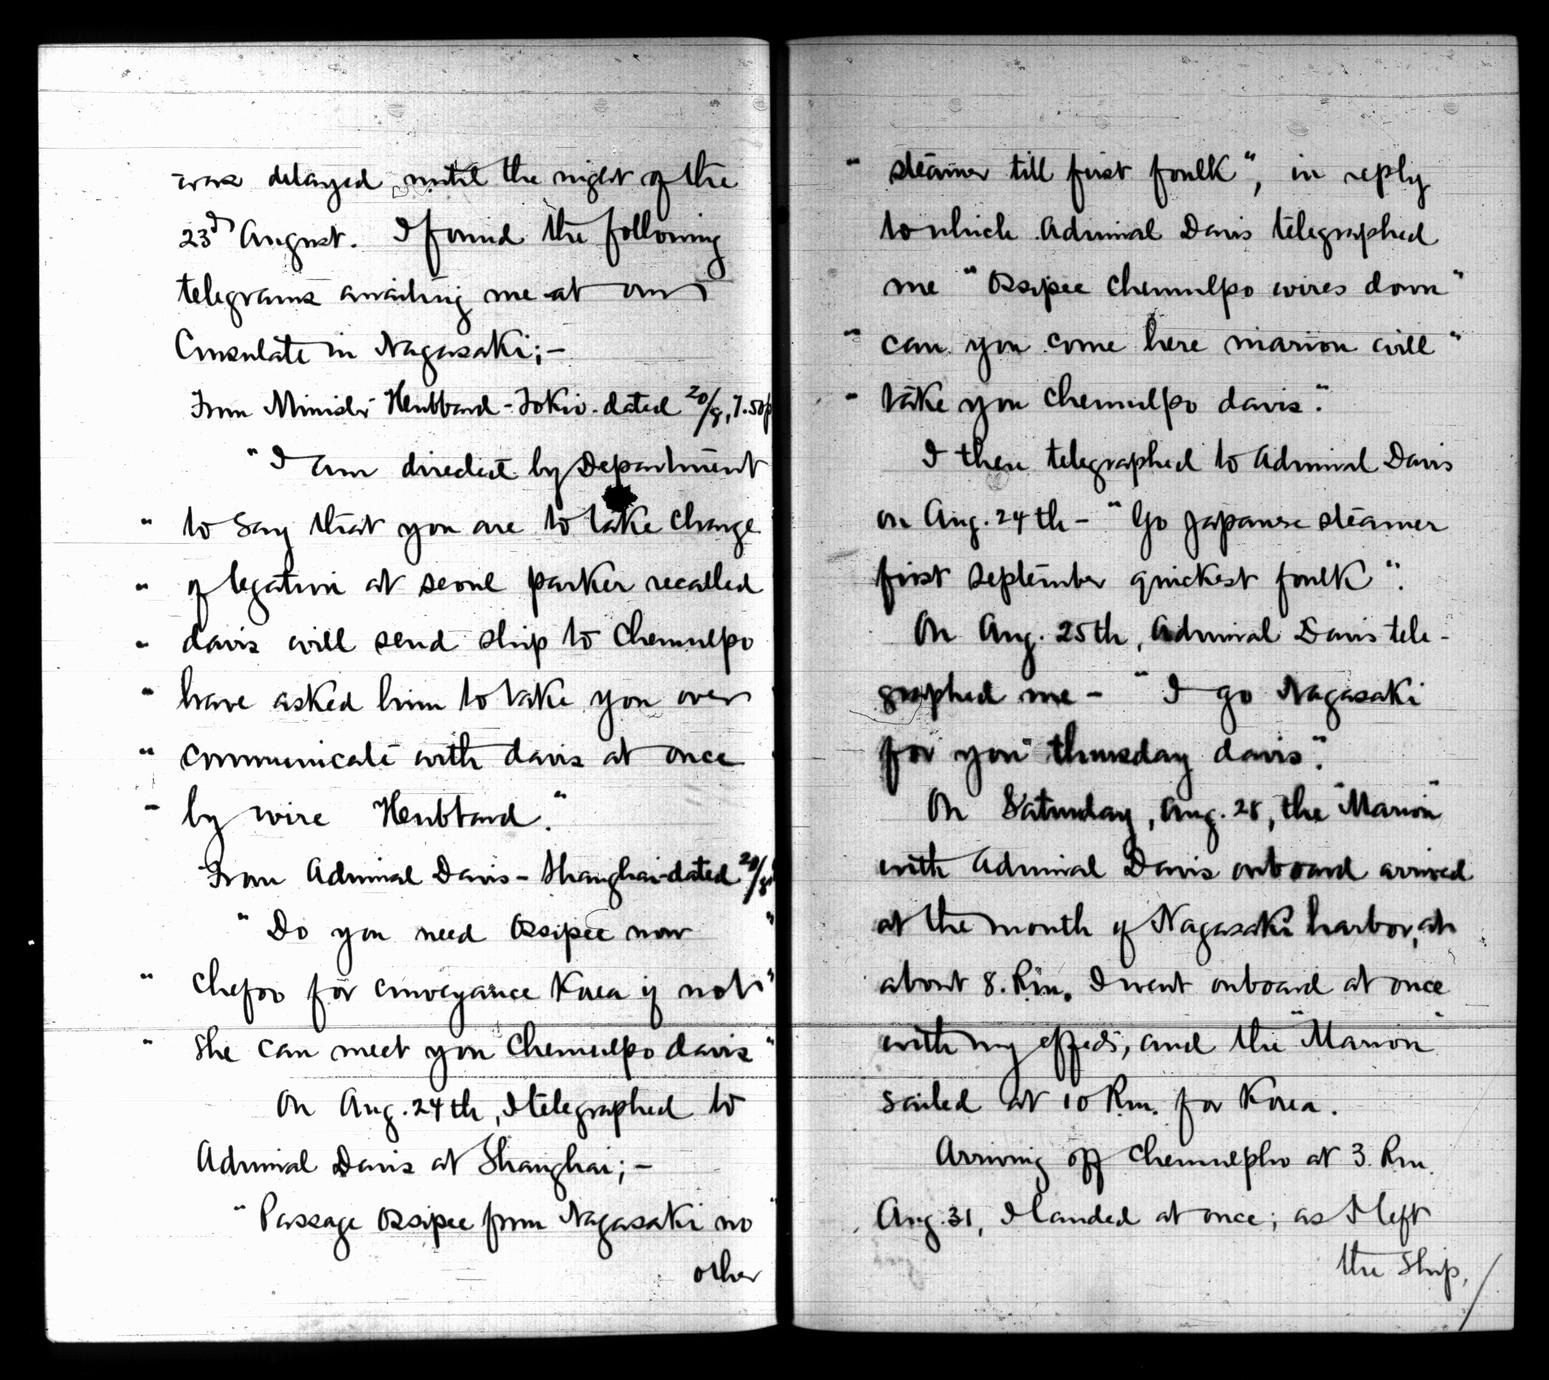 was delayed until the night of the
23d August. I found the following
telegrams awaiting me at our
Consulate in Nagasaki;-
From Minister Hubbard - Tokio. dated 20/8, 7.50p
"I am directed by Department
" to say that you are to take charge
" of legation at seoul parker recalled
" davis will send ship to Chemulpo
" have asked him to take you over
" communicate with davis at once
" by wire Hubbard."
From Admiral Davis - Shanghai dated
" Do you need Ossipee now "
" chefoo for conveyance Korea if not "
" she can meet you Chemulpo davis "
On Aug. 24th, I telegraphed to
Admiral Davis at Shanghai;-
" Passage Ossipee from Nagasaki no "
other
" steamer till first foulk", in reply
to which Admiral Davis telegraphed
me " Ossipee chemulpo wires down "
" can you come here marion will "
" take you chemulpo davis."
I then telegraphed to Admiral Davis
on Aug. 24th - " Go Japanese steamer
first september quickest foulk".
On Aug. 25th, Admiral Davis tele-
graphed me - " I go Nagasaki
for you thursday davis."
On Saturday, Aug. 28, the "Marion"
with Admiral Davis onboard arrived
at the mouth of Nagasaki harbor, at
about 8. P.m. I went onboard at once
with my effects, and the "Marion"
sailed at 10 P.m. for Korea.
Arriving off Chemulpho at 3. P.m.
Aug. 31, I landed at once; as I left
the ship,